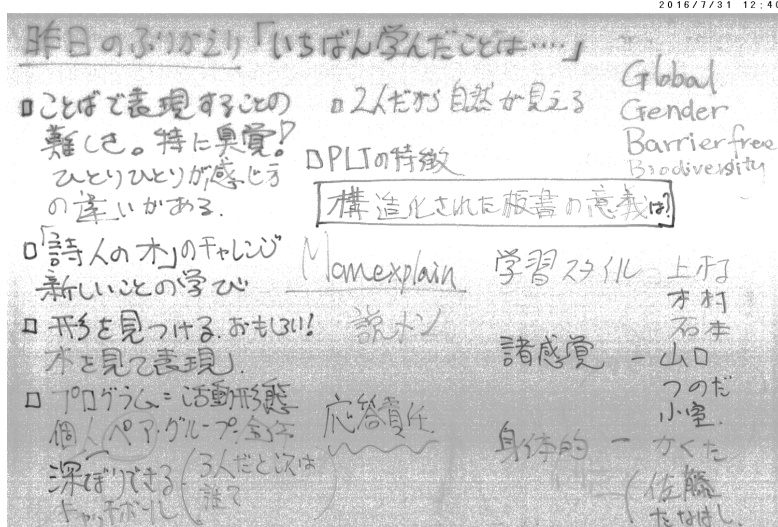 2016/7/31 12:40
昨日のふりかえり「いちばん学んだことは‥‥」
□ことばで表現することの
難しさ。特に臭覚!
ひとりひとりが感じ方
の違いがある。
□「詩人の木」のチャレンジ
新しいことの学び
□形を見つける。おもしろい!
木を見て表現」
□プログラム=活動形態
個人 ペア・グループ・全体
深ぼりできる
キャッチボール
(3人だと次は
誰て
□2人だから自然が見える
□PLTの特徴
構造化された板書の意義は?
Momexplain
説メン
応答責任
Global
Gender
Barrierfree
Biodiversity
学習スタイル 上村
木村
石本
諸感覚 - 山口
つのだ
小室
身体的 - かくた
(佐藤
たなはし